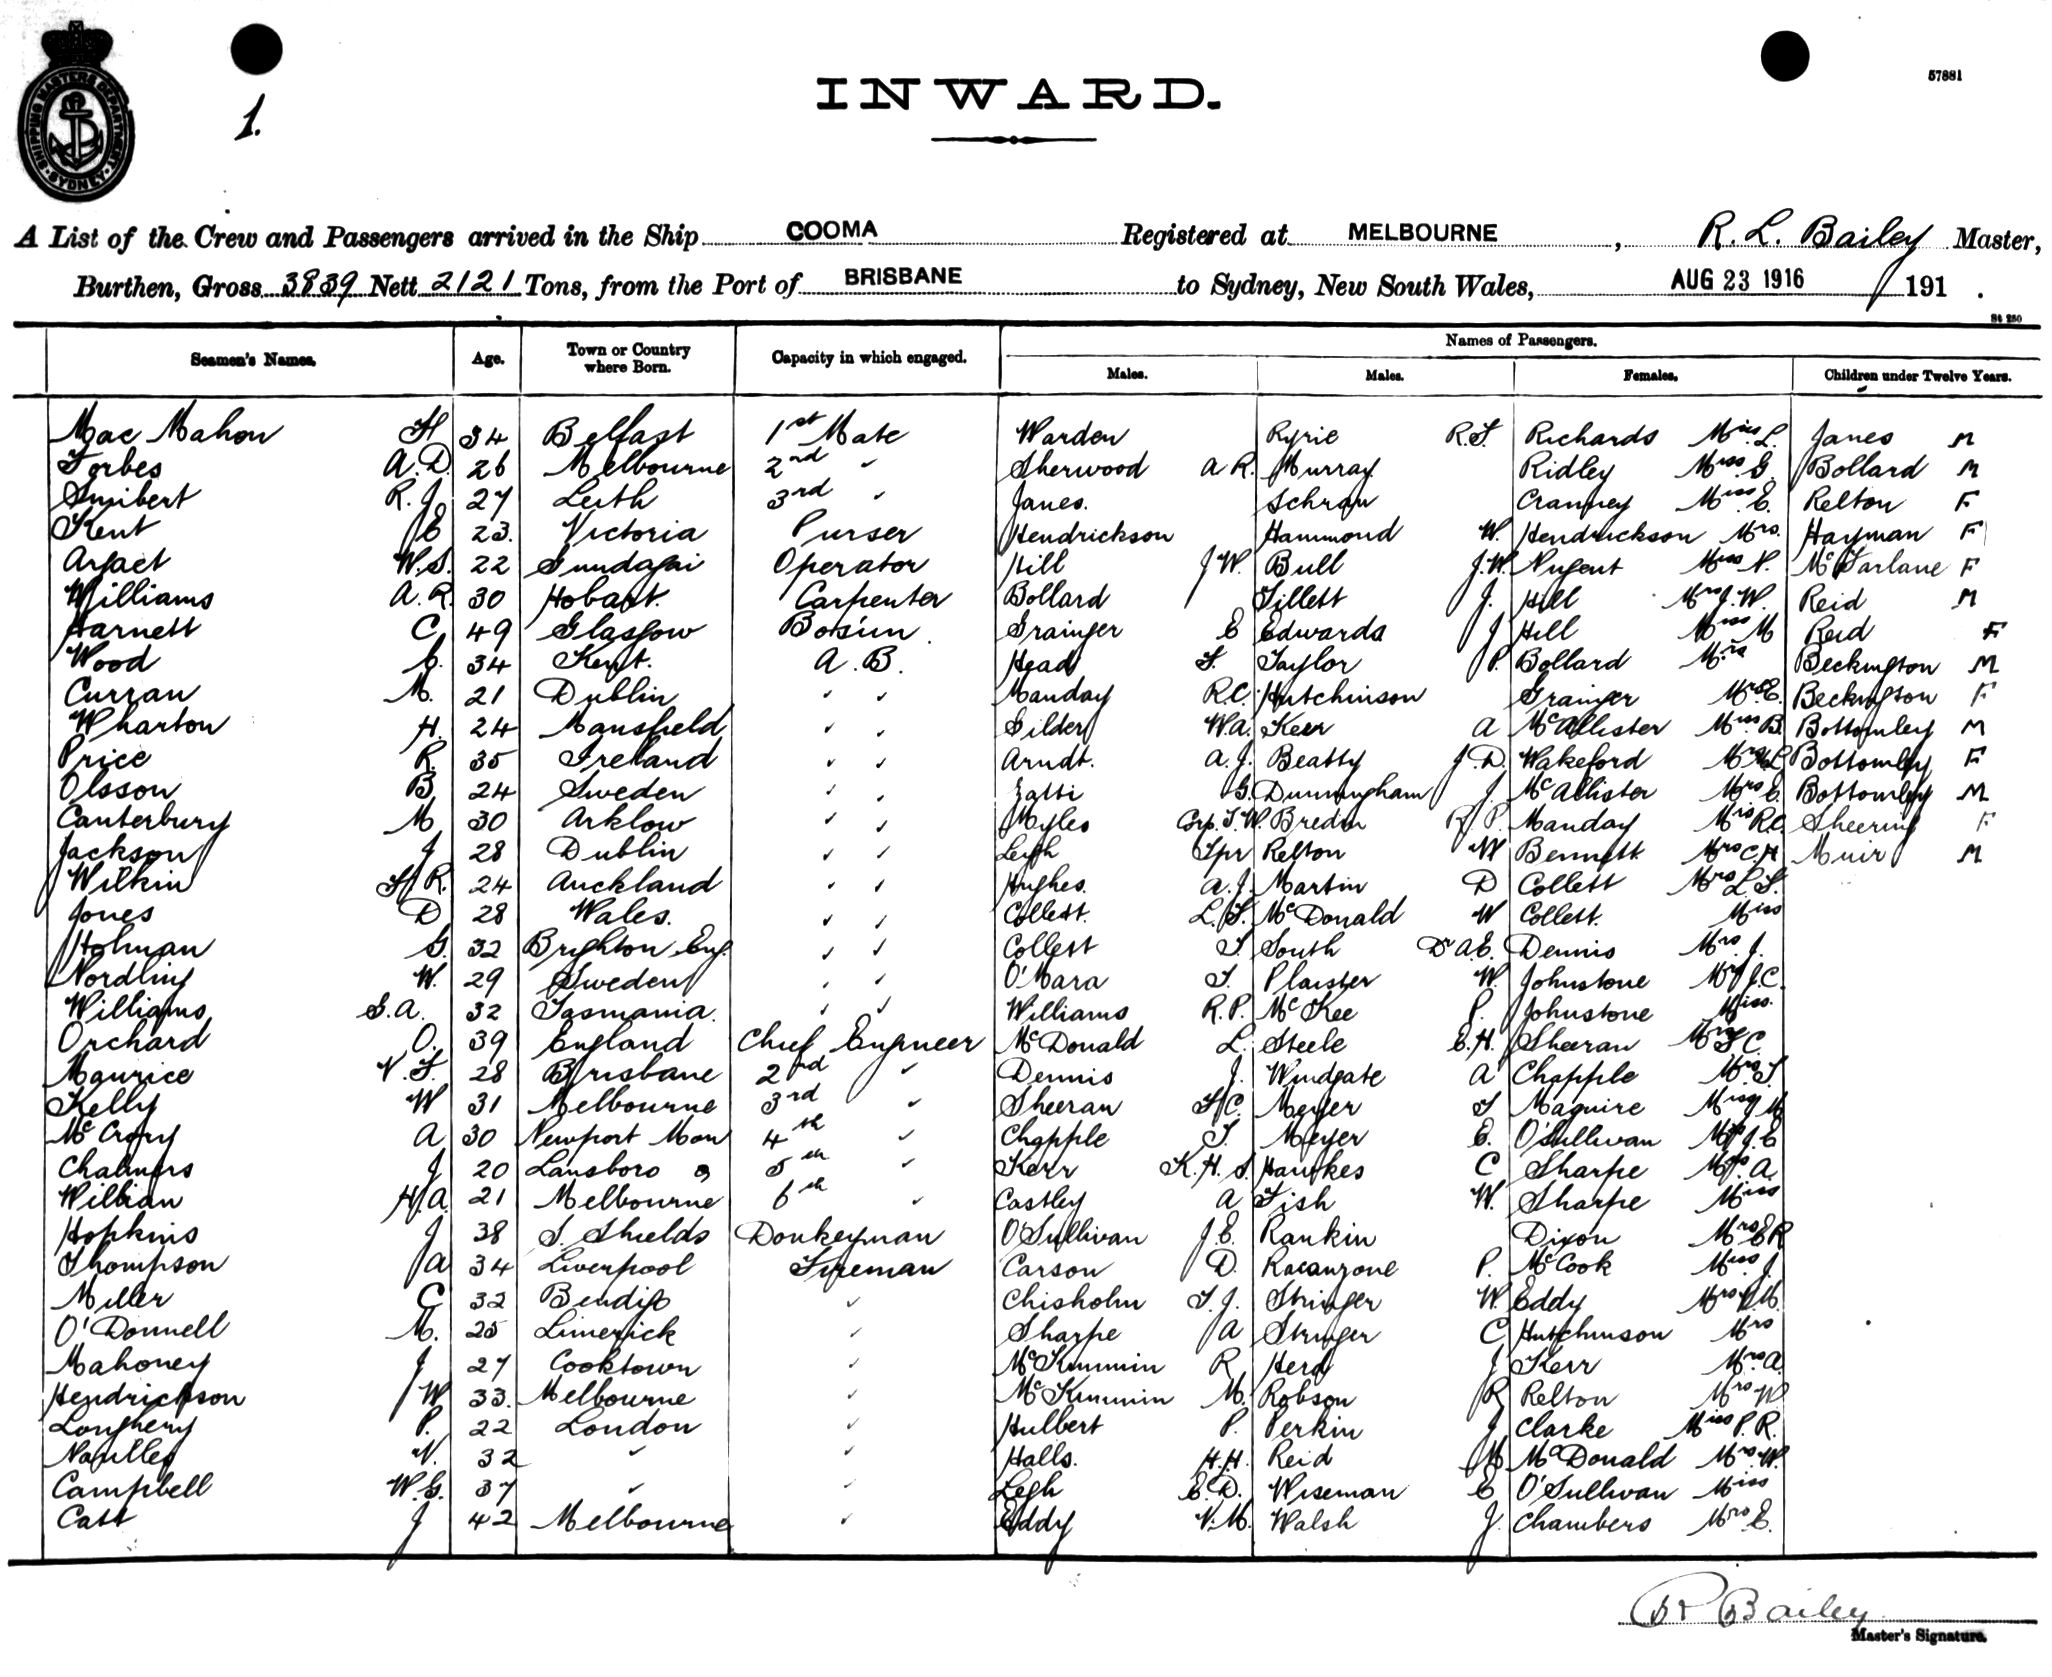 SHIPPING MASTERS DEPARTMENT SYDNEY
1.
57881
INWARD.
A List of the Crew and Passengers arrived in the Ship COOMA Registered at MELBOURNE, R. L. Bailey Master,
Burthen, Gross 3839 Nett 2121 Tons, from the Port of BRISBANE to Sydney, New South Wales, AUG 23 1916 191 .
St 250
Seamen's Names. Age. Town or Country where Born. Capacity in which engaged. Names of Passengers.
Males. Males. Females. Children under Twelve Years.
Mac Mahon H 34 Belfast 1st Mate Warden Ryrie R.S. Richards Miss L. Janes M
Forbes A.D. 26 Melbourne 2nd " Sherwood A R. Murray Ridley Miss G. Bollard M
Smibert R.J. 27 Leith 3rd " Janes. Schrau Cranney Miss E. Relton F
Kent E 23. Victoria Purser Hendrickson Hammond W. Hendrickson Mrs. Hayman F
W.S. 22 Gundagai Operator Hill J W. Bull J.W. Nugent Miss N. McFarlane F
Williams A.R. 30 Hobart. Carpenter Bollard Tillett J. Hill Mrs J.W. Reid M
Harnett C 49 Glasgow Bos'un. Grainger E Edwards J Hill Miss M Reid F
Wood 34 Kent. A.B. Head Taylor P. Bollard Mrs Beckington M
Curran M. 21 Dublin " " Manday R.C. Hutchinson Grainger Mrs E. Beckington F
Wharton H. 24 Mansfield " " Gilder W.A. Kerr A McAllister Miss B. Bottomley M
Price R. 35 Ireland " " Arndt. A.J. Beatty J.D. Wakeford Bottomley F
Olsson B 24 Sweden " " Zatti G. Dunningham J McAllister Mrs E. Bottomley M
Canterbury M 30 Arklow " " Myles Corp. T.W. Bredin R.P. Manday Mrs R.C. Sheering F
Jackson J 28 Dublin " " Leigh Spr Relton W Bennett Mrs C.H Muir M
Wilkin H R. 24 Auckland " " Hughes. A.J. Martin D Collett Mrs L.S.
Jones D 28 Wales. " " Collett. L.S. McDonald W Collett. Miss
Holman G. 32 Brighton Eng. " " Collett S. South Dr A.E. Dennis Mrs J.
Nordling W. 29 Sweden " " O'Mara T. Plaister W. Johnstone Mrs J.C.
Williams G.A. 32 Tasmania. " " Williams R.P. McKee P. Johnstone Miss.
Orchard O. 39 England Chief Engineer McDonald L. Steele E.H. Sheeran Mrs F C.
Maurice N.F. 28 Brisbane 2nd " Dennis J. Windgate A Chapple Mrs T.
Kelly W 31 Melbourne 3rd " Sheeran F C. Meyer Maguire Miss M
McCrory A 30 Newport Mon 4th " Chapple T. Meyer E. O'Sullivan Mrs J.E
Chalmers J 20 Lansboro 5th " Kerr K.H.S. Hawkes C Sharpe Mrs A.
Willian H.A. 21 Melbourne 6th " Castley A Fish W. Sharpe Miss
Hopkins J 38 S. Shields Donkeyman O'Sullivan J.E. Rankin Dixon Mrs E R
Thompson A 34 Liverpool Fireman Carson D. Racanzone P. McCook Miss J.
Miller C 32 Bendigo " Chisholm T.J. Stringer W. Eddy Mrs N.M.
O'Donnell M. 25 Limerick " Sharpe A Stringer C Hutchinson Mrs
Mahoney J 27 Cooktown " McKimmin R Herd J Kerr Mrs A
Hendrickson W 33. Melbourne " McKimmin M. Robson R Relton Mrs W
Loughery P. 22 London " Hulbert P. Perkin J Clarke Miss P.R.
N. 32 " " Halls. H.H. Reid M McDonald Mrs W.
Campbell W.G. 37 " " Legh E.D. Wiseman E O'Sullivan Miss
Catt J 42 Melbourne " Eddy N.M. Walsh J. Chambers Mrs E.
R L Bailey
Master's Signature.